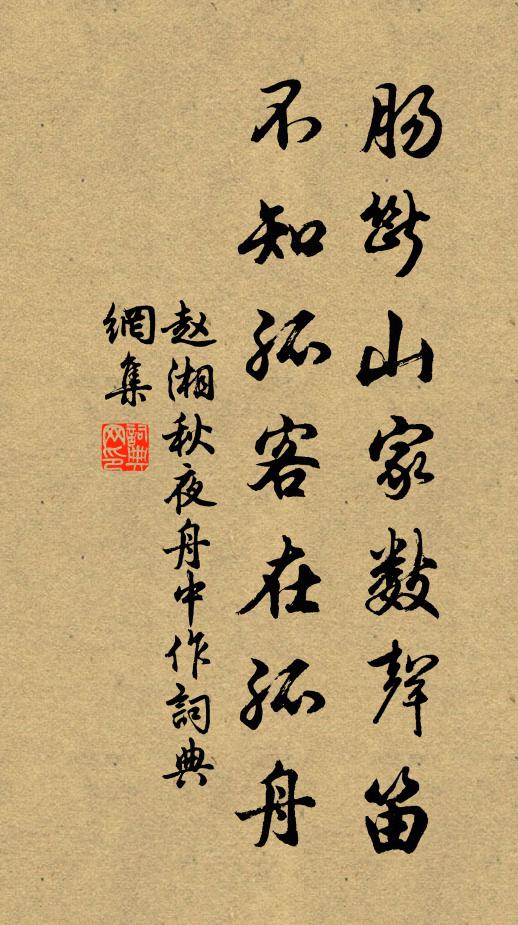 肠斷山家數聲笛
不知孤客在孤舟
赵湘秋夜舟中作詞典
網集
詞典
网印